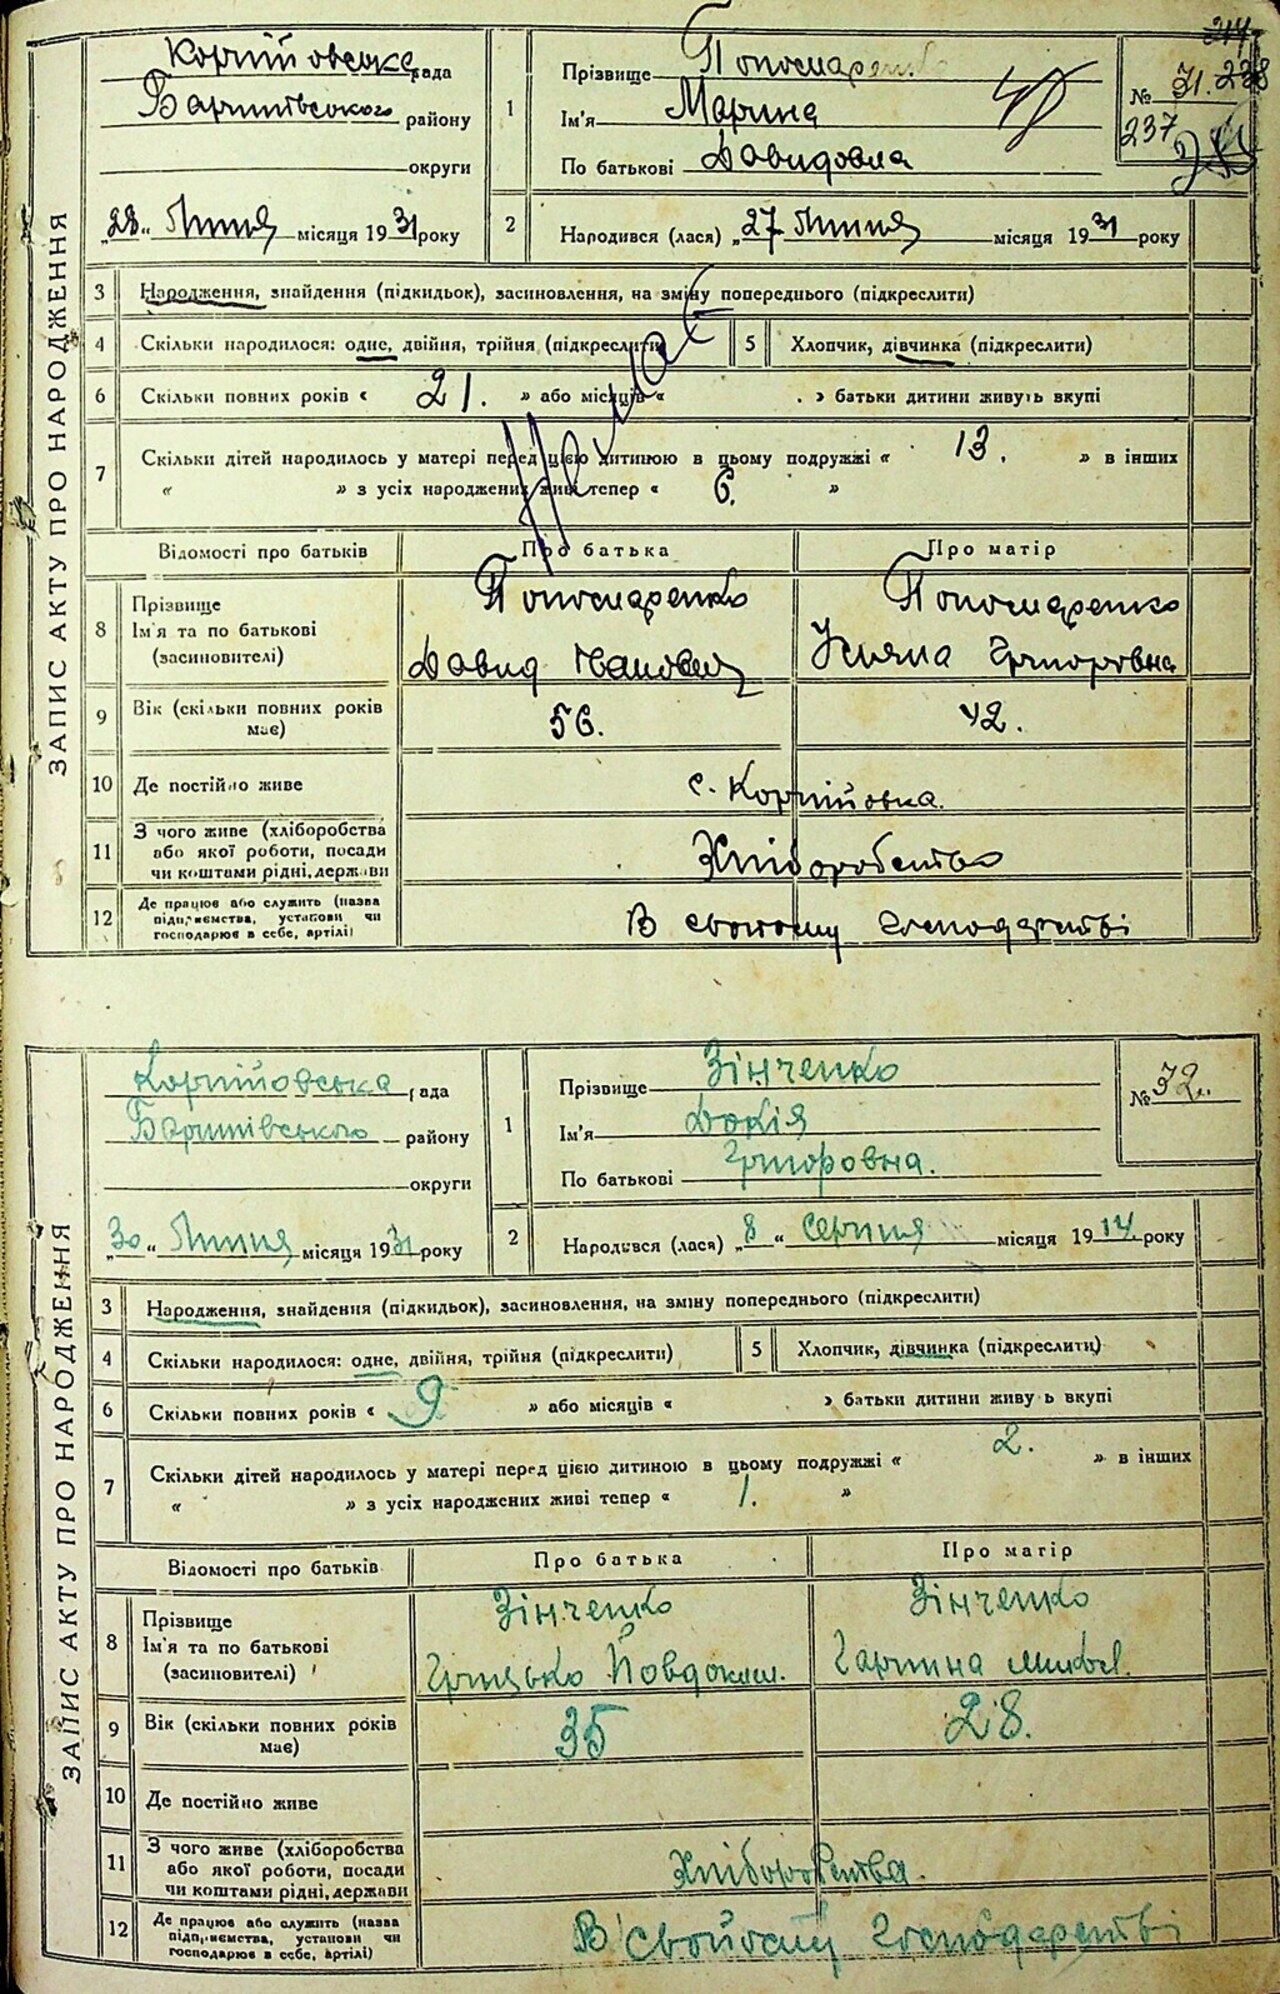 ЗАПИС АКТУ ПРО НАРОДЖЕННЯ
Корнійовська рада
Баришівського району
округи
„28“ Липня місяця 1931 року
1
Прізвище Пономаренко
Ім'я Марина
По батькові Давидовна
№ 71. 238
237
2
Народився (лася) „27 Липня місяця 1931 року
3 Народження, знайдення (підкидьок), засиновлення, на зміну попереднього (підкреслити)
4 Скільки народилося: одне, двійня, трійня (підкреслити)
5 Хлопчик, дівчинка (підкреслити)
6 Скільки повних років « 21. » або місяців « » батьки дитини живуть вкупі
7 Скільки дітей народилось у матері перед цією дитиною в цьому подружжі « 13. » в інших
« » з усіх народжених живі тепер « 6. »
Немає
Відомості про батьків Про батька Про матір
8 Прізвище
Ім'я та по батькові
(засиновителі)
Пономаренко
Давид Іванович
Пономаренко
Уляна Григоровна
9 Вік (скільки повних років
має)
56. 42.
10 Де постійно живе с. Корнійовка.
11 З чого живе (хліборобства
або якої роботи, посади
чи коштами рідні, держави
Хліборобство
12 Де працює або служить (назва
підприємства, установи чи
господарює в себе, артілі)
В свойому господарстві
ЗАПИС АКТУ ПРО НАРОДЖЕННЯ
Корнійовська рада
Баришівського району
округи
„30“ Липня місяця 1931 року
1
Прізвище Зінченко
Ім'я Докія
По батькові Григоровна.
№ 72.
2
Народився (лася) „8“ Серпня місяця 1914 року
3 Народження, знайдення (підкидьок), засиновлення, на зміну попереднього (підкреслити)
4 Скільки народилося: одне, двійня, трійня (підкреслити)
5 Хлопчик, дівчинка (підкреслити)
6 Скільки повних років « 9 » або місяців « » батьки дитини живуть вкупі
7 Скільки дітей народилось у матері перед цією дитиною в цьому подружжі « 2. » в інших
« » з усіх народжених живі тепер « 1. »
Відомості про батьків Про батька Про матір
8 Прізвище
Ім'я та по батькові
(засиновителі)
Зінченко
Грицько Йовдоким.
Зінченко
Гарпина
9 Вік (скільки повних років
має)
35 28.
10 Де постійно живе
11 З чого живе (хліборобства
або якої роботи, посади
чи коштами рідні, держави
Хліборобства.
12 Де працює або служить (назва
підприємства, установи чи
господарює в себе, артілі)
В свойому господарстві